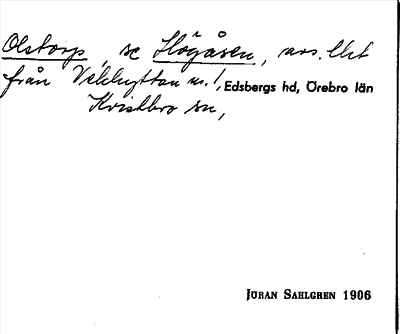 Olstorp, se Högåsen, avs. Utt
från Vekhyttan m. fl., Edsbergs hd, Örebro län
Kvistbro sn,
JÖRAN SAHLGREN 1906